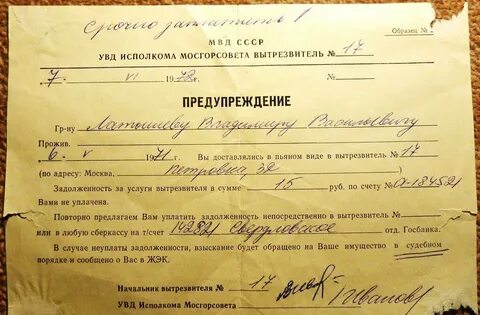 Срочно заплатить!
Образец №
МВД СССР
УВД ИСПОЛКОМА МОСГОРСОВЕТА ВЫТРЕЗВИТЕЛЬ № 17
7 VI 1972 г.
ПРЕДУПРЕЖДЕНИЕ
Гр-ну Латышеву Владимиру Васильевичу
Прожив.
6 V 1971 г. Вы доставлялись в пьяном виде в вытрезвитель № 17
(по адресу: Москва, Петровка, 32)
Задолженность за услуги вытрезвителя в сумме 15 руб. по счету № А-184521
Вами не уплачена.
Повторно предлагаем Вам уплатить задолженность непосредственно в вытрезвитель №
или в любую сберкассу на т/счет 142821 Свердловское отд. Госбанка.
В случае неуплаты задолженности, взыскание будет обращено на Ваше имущество в судебном
порядке и сообщено о Вас в ЖЭК.
Начальник вытрезвителя № 17
УВД Исполкома Мосгорсовета Иванов